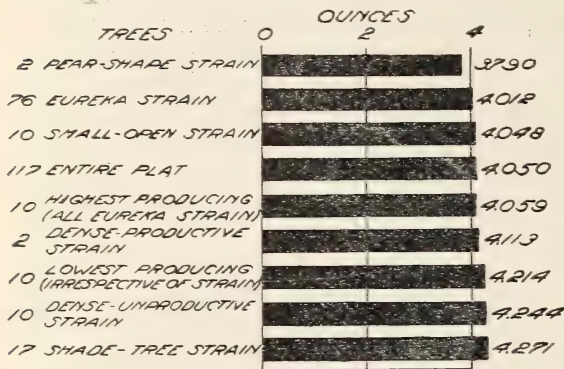 OUNCES
TREES 0 2 4
2 PEAR-SHAPE STRAIN 3.790
76 EUREKA STRAIN 4.012
10 SMALL-OPEN STRAIN 4.048
117 ENTIRE PLAT 4.050
10 HIGHEST PRODUCING (ALL EUREKA STRAIN) 4.059
2 DENSE-PRODUCTIVE STRAIN 4.113
10 LOWEST PRODUCING (IRRESPECTIVE OF STRAIN) 4.214
10 DENSE-UNPRODUCTIVE STRAIN 4.244
17 SHADE-TREE STRAIN 4.271